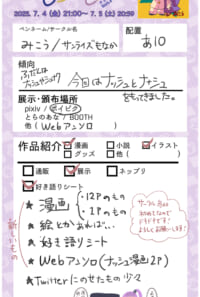 2025. 7. 4 (金) 21:00〜 7. 5 (土) 20:59
ペンネーム/サークル名
配置
みこう/サンライズもなか
あ10
傾向
ふだんは
今回はナッシュとナッシュ
をもってきました。
展示・頒布場所
pixiv / ポイピク
とらのあな / BOOTH
他 ( Webアンソロ )
作品紹介
漫画
小説
イラスト
グッズ
他 ( )
通販
展示
ネップリ
好き語りシート
★漫画
・12Pのもの
・1Pのもの
★絵とかまんが…
★好き語りシート
★Webアンソロ(ナッシュ漫画2P)
★Twitterにのせたもの
新しいもの
よろしくお願いします!